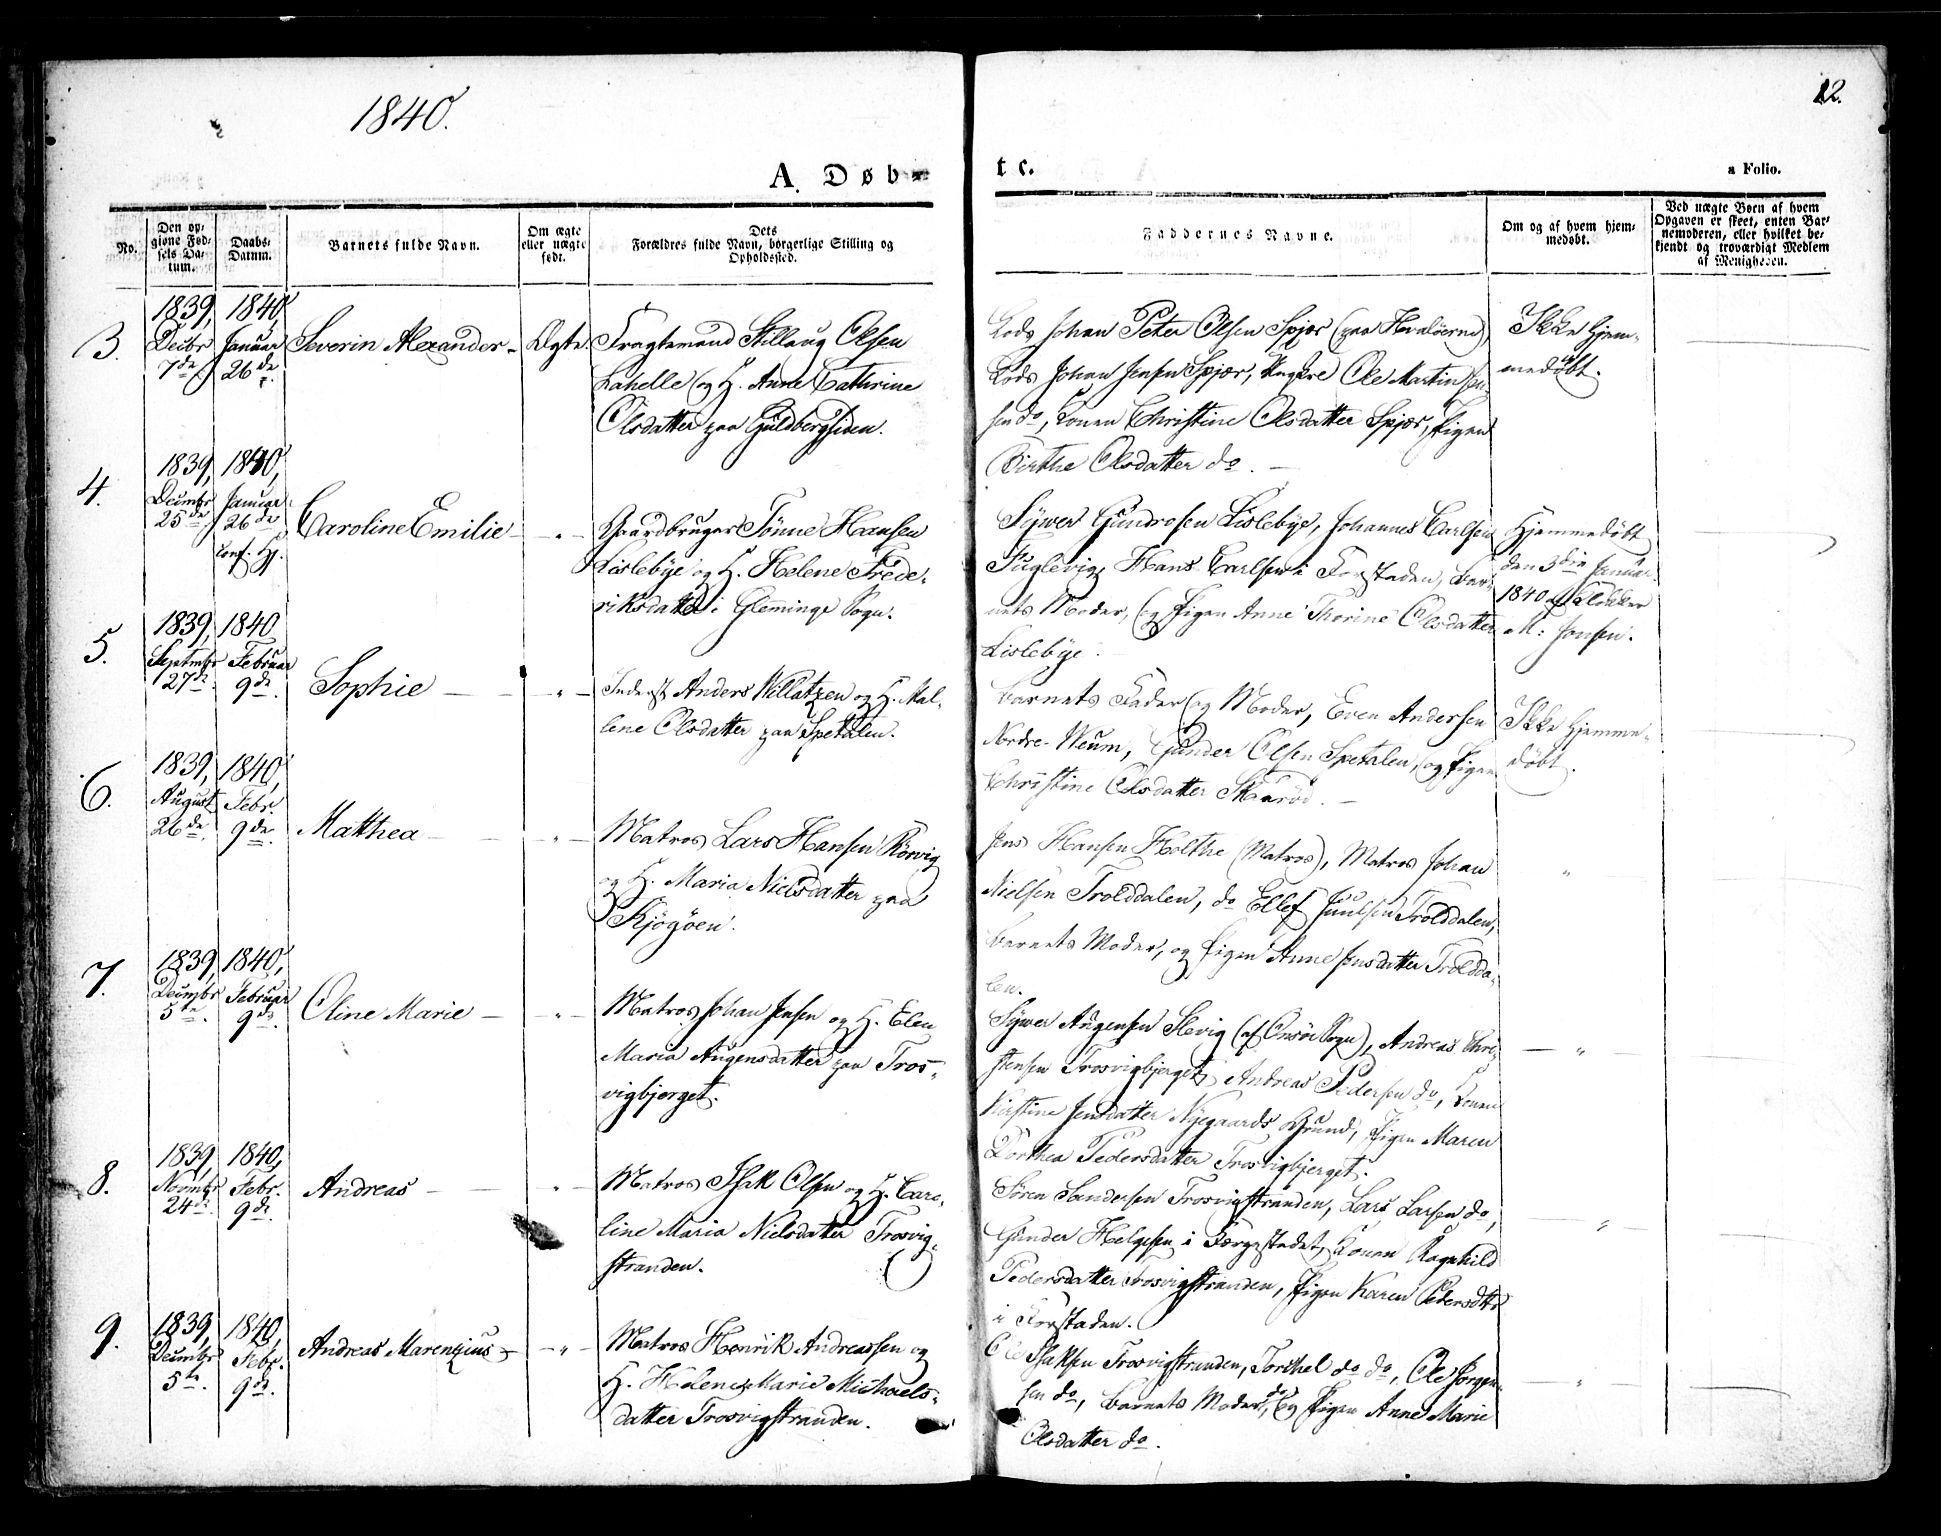 1840.
12.
A. Døb-
t c.
a Folio.
No.
Den op-
givne Fød-
sels Da-
tum.
Daabs-
Datum.
Barnets fulde Navn.
Om ægte
eller uægte
født.
Dets
Forældres fulde Navn, borgerlige Stilling og
Opholdssted.
Faddernes Navne.
Om og af hvem hjem-
medøbt.
Ved uægte Børn af hvem
Opgaven er skeet, enten Bar-
nemoderen, eller hvilket be-
kjendt og troværdigt Medlem
af Menigheden.
3.
1839,
Decbr
7de
1840
Januar
26de
Severin Alexander
Ægte
Fragtemand Stillaug Olsen
Lahelle og H. Anne Cathrine
Olsdatter paa Guldbergsiden.
Lods Johan Peter Olsen Spjær (paa Hvaløerne),
Lods Johan Jensen Spjær, Ungkre Ole Martin Jen-
sen do, Konen Christine Olsdatter Spjær, Pigen
Birthe Olsdatter do.
Ikke hjem-
medøbt.
4.
1839,
Decembr
25de
1840,
Januar
26de
conf. Hj.
Caroline Emilie
- " -
Gaardbruger Tønne Hansen
Lislebye og H. Helene Frede-
riksdatter i Glemminge Sogn.
Syver Gundrosen Lislebye, Johannes Carlsen
Fuglevig, Hans Carlsen i Forstaden, Bar-
nets Moder, og Pigen Anne Thorine Olsdatter
Lislebye.
Hjemmedøbt
den 3die Januar
1840 af Klokker
M: Jonsen.
5.
1839,
Septmbr
27de
1840
Februar
9de
Sophie
- " -
Inderst Anders Willatzen og H. Mal-
lene Olsdatter paa Spetalen.
Barnets Fader og Moder, Even Andersen
Nordre-Weum, Gunder Olsen Spetalen, og Pigen
Christine Olsdatter Skaarød.
Ikke Hjemme-
døbt.
6.
1839,
August
26de
1840,
Febr.
9de
Matthea
- " -
Matros Lars Hansen Rörvig
og H. Maria Nielsdatter paa
Kjøgøen.
Jens Hansen Holthe (Matros), Matros Johan
Nielsen Trolddalen, do Ellef Juulsen Trolddalen,
Barnets Moder, og Pigen Anne Jensdatter Troldda-
len.
"
7.
1839,
Decembr
5te
1840,
Februar
9de
Oline Marie
- " -
Matros Johan Jensen og H. Elen
Maria Augensdatter paa Tros-
vigbjerget.
Syver Augensen Slevig (af Onsøe Sogn), Andreas Chri-
stensen Trosvigbjerget, Andreas Pedersen do, Konen
Kirstine Jensdatter Nygaards Grund, Pigen Maren
Dorthea Pedersdatter Trosvigbjerget.
- " -
8.
1839,
Novmbr
24de
1840,
Febr.
9de
Andreas
- " -
Matros Isak Olsen og H. Caro-
line Maria Nielsdatter Trosvig-
stranden.
Søren Sandersen Trosvigstranden, Lars Larsen do,
Gunder Helgesen i Færgestedet, Konen Ragnhild
Pedersdatter Trosvigstranden, Pigen Karen Pedersdtr
i Forstaden.
- " -
9.
1839,
Decembr
5te
1840,
Febr.
9de
Andreas Marenzius
- " -
Matros Henrik Andreassen og
H. Helene Marie Michaels-
datter Trosvigstranden.
Ole Isaksen Trosvigstranden, Torkhel do do, Ole Jørgen-
sen do, Barnets Moder, og Pigen Anne Marie
Olsdatter do.
- " -